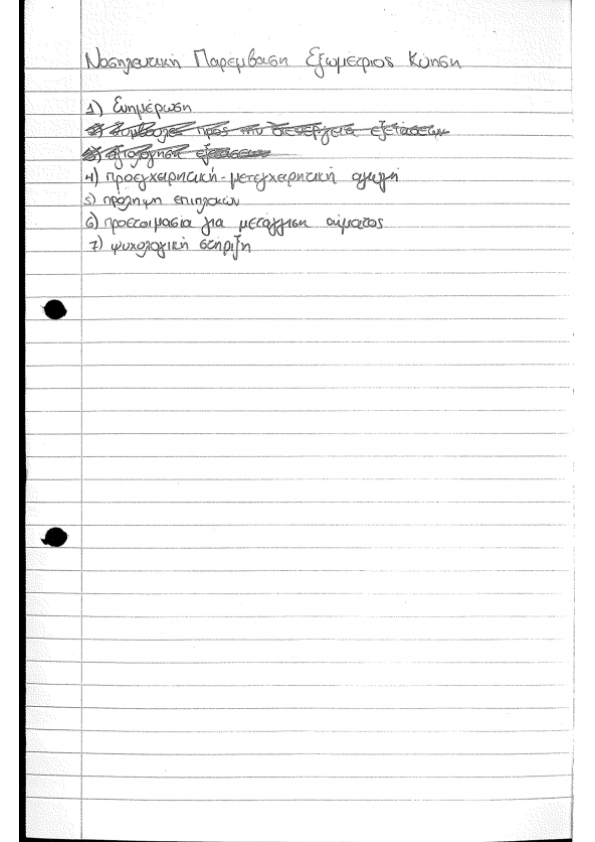 Νοσηλευτική Παρέμβαση Εξωμήτριος Κύηση
1) Ενημέρωση
2) Συμβουλές προς την διενέργεια εξετάσεων
3) αξιολόγηση εξετάσεων
4) προεγχειρητική-μετεγχειρητική αγωγή
5) πρόληψη επιπλοκών
6) προετοιμασία για μετάγγιση αίματος
7) ψυχολογική στήριξη